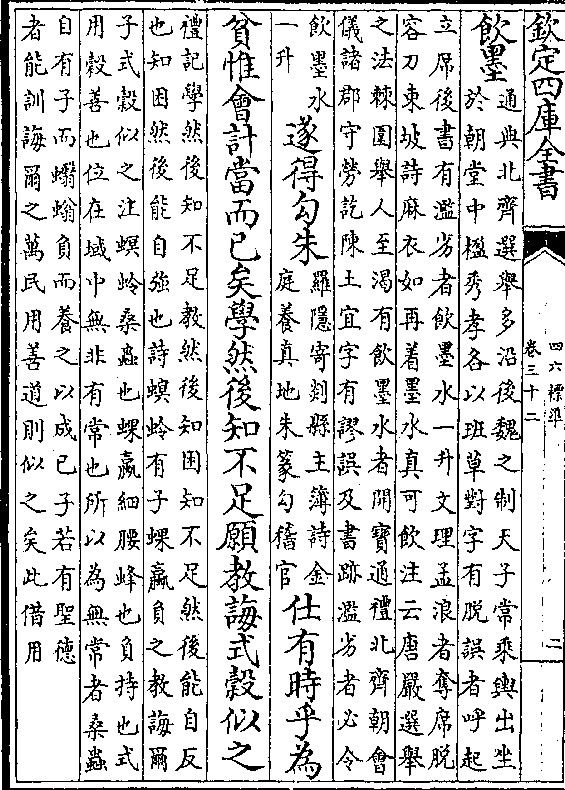 欽定四庫全書
四六標準
卷三十二
二
飲墨
通典北齊選舉多沿後魏之制天子常乘輿出坐
於朝堂中楹秀孝各以班草對字有脱誤者呼起
立席後書有濫劣者飲墨水一升文理孟浪者奪席脱
容刀東坡詩麻衣如再着墨水真可飲注云唐嚴選舉
之法棘圍舉人至渴有飲墨水者開寶通禮北齊朝會
儀諸郡守勞訖陳土宜字有謬誤及書跡濫劣者必令
飲墨水
一升
遂得勾朱
羅隱寄剡縣主簿詩金
庭養真地朱篆勾稽官
仕有時乎為
貧惟會計當而已矣學然後知不足願教誨式榖似之
禮記學然後知不足教然後知困知不足然後能自反
也知困然後能自強也詩螟蛉有子蜾蠃負之教誨爾
子式榖似之注螟蛉桑蟲也蜾蠃細腰蜂也負持也式
用榖善也位在域中無非有常也所以為無常者桑蟲
自有子而蠮螉負而養之以成已子若有聖德
者能訓誨爾之萬民用善道則似之矣此借用